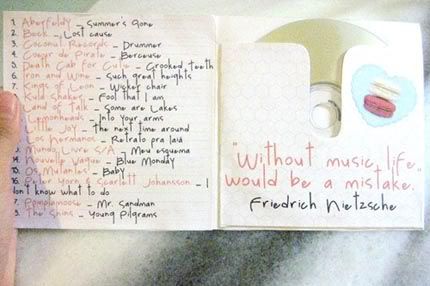 1. Aberfeldy – Summer's gone
2. Beck – Lost cause
3. Coconut Records – Drummer
4. Coeur de Pirate – Berceuse
5. Death Cab For Cutie – Crooked teeth
6. Iron and Wine – Such great heights
7. Kings of Leon – Wicker chair
Kula Shaker – Fool that I am
Land of Talk – Some are Lakes
Lemonheads – Into your arms
Little Joy – the next time around
Los Hermanos – Retrato pra Iaiá
Mundo Livre S/A – Meu esquema
Nouvelle Vague – Blue Monday
Os Mutantes – Baby
Peter Yorn & Scarlett Johansson – I
don't know what to do
Pomplamoose – Mr. Sandman
The Shins – Young Pilgrams
"Without music, life
would be a mistake."
Friedrich Nietzsche